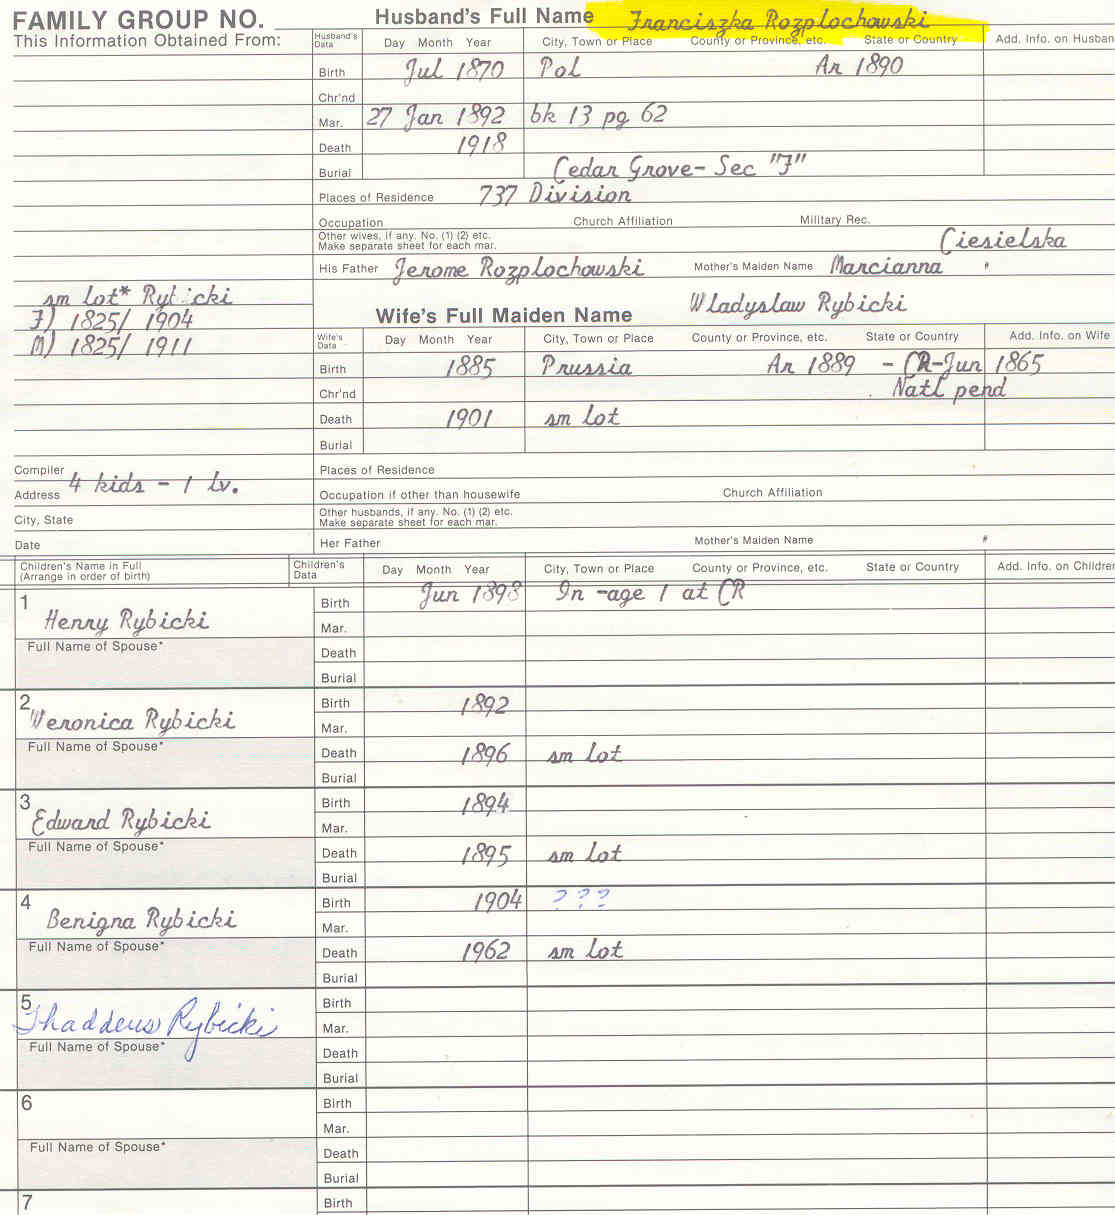 FAMILY GROUP NO.
Husband's Full Name Franciszka Rozplochowski
This Information Obtained From:
Husband's Data Day Month Year City, Town or Place County or Province, etc. State or Country Add. Info. on Husban
Birth Jul 1870 Pol Ar 1890
Chr'nd
Mar. 27 Jan 1892 bk 13 pg 62
Death 1918
Burial Cedar Grove- Sec "F"
Places of Residence 737 Division
Occupation Church Affiliation Military Rec.
Other wives, if any. No. (1) (2) etc.
Make separate sheet for each mar.
Ciesielska
His Father Jerome Rozplochowski Mother's Maiden Name Marcianna
sm lot* Rybicki
F) 1825/ 1904
M) 1825/ 1911
Wladyslaw Rybicki
Wife's Full Maiden Name
Wife's Data Day Month Year City, Town or Place County or Province, etc. State or Country Add. Info. on Wife
Birth 1885 Prussia Ar 1889 - CR-Jun 1865
Chr'nd Natl pend
Death 1901 sm lot
Burial
Compiler
Places of Residence
4 kids - 1 lv.
Address
Occupation if other than housewife Church Affiliation
City, State
Other husbands, if any. No. (1) (2) etc.
Make separate sheet for each mar.
Date
Her Father Mother's Maiden Name #
Children's Name in Full
(Arrange in order of birth)
Children's Data Day Month Year City, Town or Place County or Province, etc. State or Country Add. Info. on Childre
1 Henry Rybicki
Birth Jun 1898 In -age 1 at CR
Mar.
Full Name of Spouse*
Death
Burial
2 Weronica Rybicki
Birth 1892
Mar.
Full Name of Spouse*
Death 1896 sm lot
Burial
3 Edward Rybicki
Birth 1894
Mar.
Full Name of Spouse*
Death 1895 sm lot
Burial
4 Benigna Rybicki
Birth 1904 ???
Mar.
Full Name of Spouse*
Death 1962 sm lot
Burial
5 Thaddeus Rybicki
Birth
Mar.
Full Name of Spouse*
Death
Burial
6
Birth
Mar.
Full Name of Spouse*
Death
Burial
7
Birth